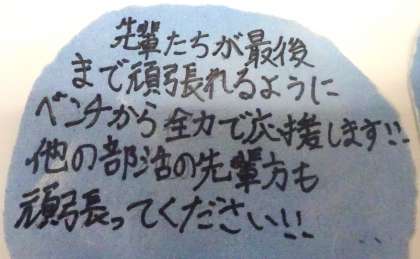 先輩たちが最後
まで頑張れるように
ベンチから全力で応援します!!
他の部活の先輩方も
頑張ってください!!